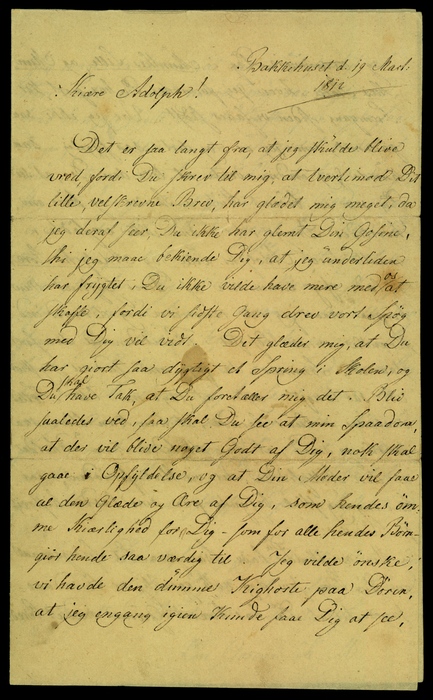 Bakkehuset d. 19 Mart.
1812
Kiære Adolph!
Det er saa langt fra, at jeg skulde blive
vred, fordi Du skrev til mig, at tvertimod Dit
lille, velskrevne Brev, har glædet mig meget, da
jeg deraf seer, Du ikke har glemt Din Gosine,
thi jeg maae bekiende Dig, at jeg ünderliden
har frygtet, Du ikke vilde have mere med os at
skaffe, fordi vi sidste Gang drev vort Spøg
med Dig vel vidt. Det glæder mig, at Du
har giort saa dygtigt et Spring i Skolen, og
Du skal have Tak, at Du fortæller mig det. Bliv
saaledes ved, saa skal Du see at min Spaadom,
at der vil blive noget Godt af Dig, nok skal
gaae i Opfyldelse, og at Din Moder vil faae
al den Glæde og Ære af Dig, som hendes öm-
me Kiærlighed for Dig - som for alle hendes Börn-
giör hende saa værdig til. Jeg vilde önske,
vi havde den dümme Kighoste paa Dören,
at jeg engang igien kunde faae Dig at see,